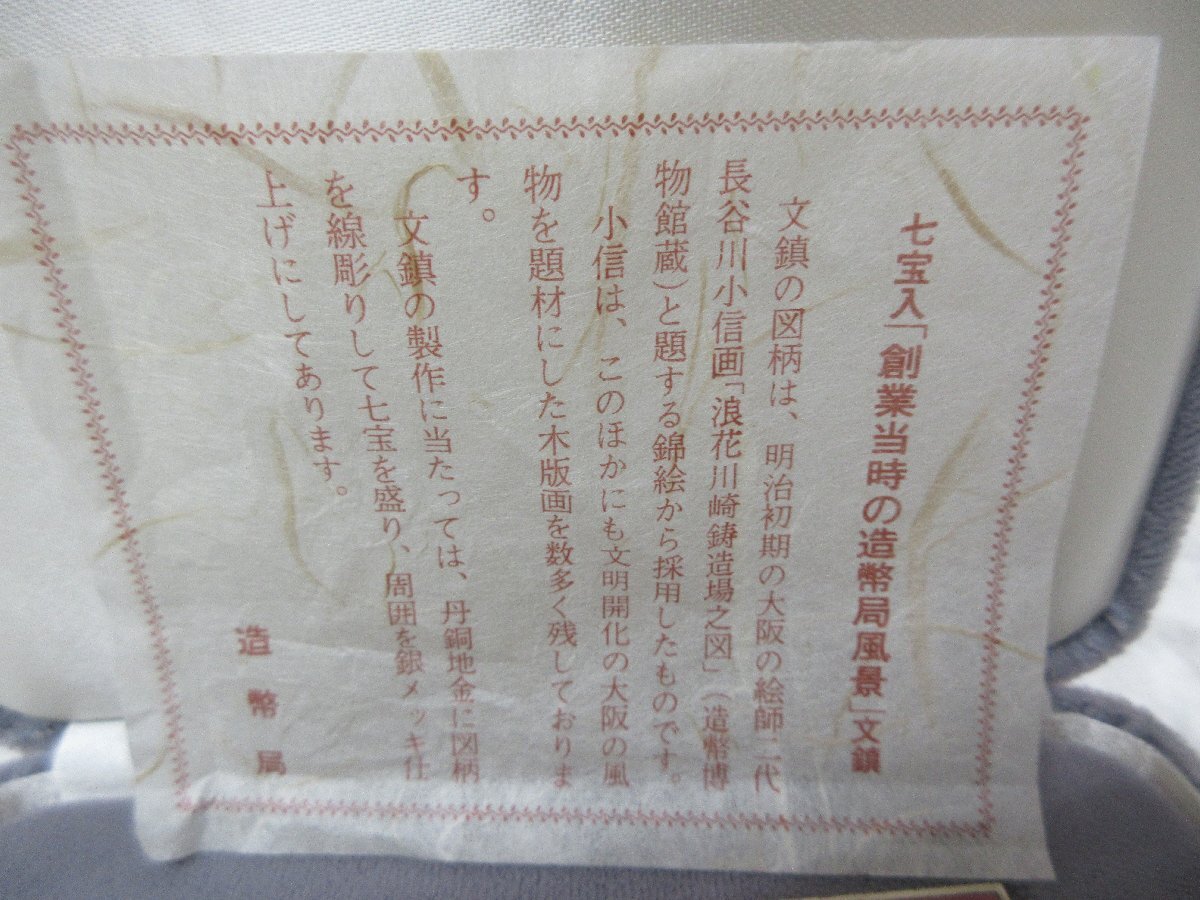 七宝入「創業当時の造幣局風景」文鎮
文鎮の図柄は、明治初期の大阪の絵師二代
長谷川小信画「浪花川崎鋳造場之図」（造幣博
物館蔵）と題する錦絵から採用したものです。
小信は、このほかにも文明開化の大阪の風
物を題材にした木版画を数多く残しておりま
す。
文鎮の製作に当たっては、丹銅地金に図柄
を線彫りして七宝を盛り、周囲を銀メッキ仕
上げにしてあります。
造幣局